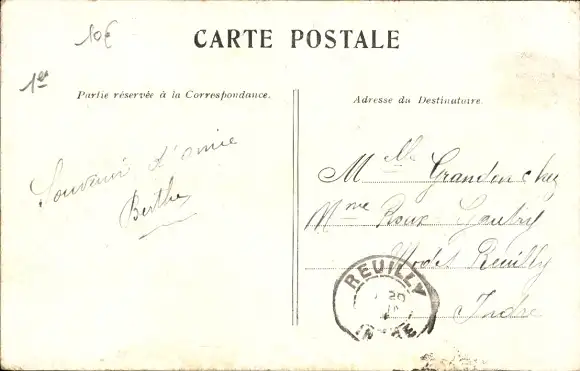 10€
CARTE POSTALE
1er
Partie réservée à la Correspondance.
Adresse du Destinataire.
Souvenir d'amie
Berthe
Mlle Grandin chez
Mme Roux-Gautry
Modes Reuilly
Indre
REUILLY
20
INDRE